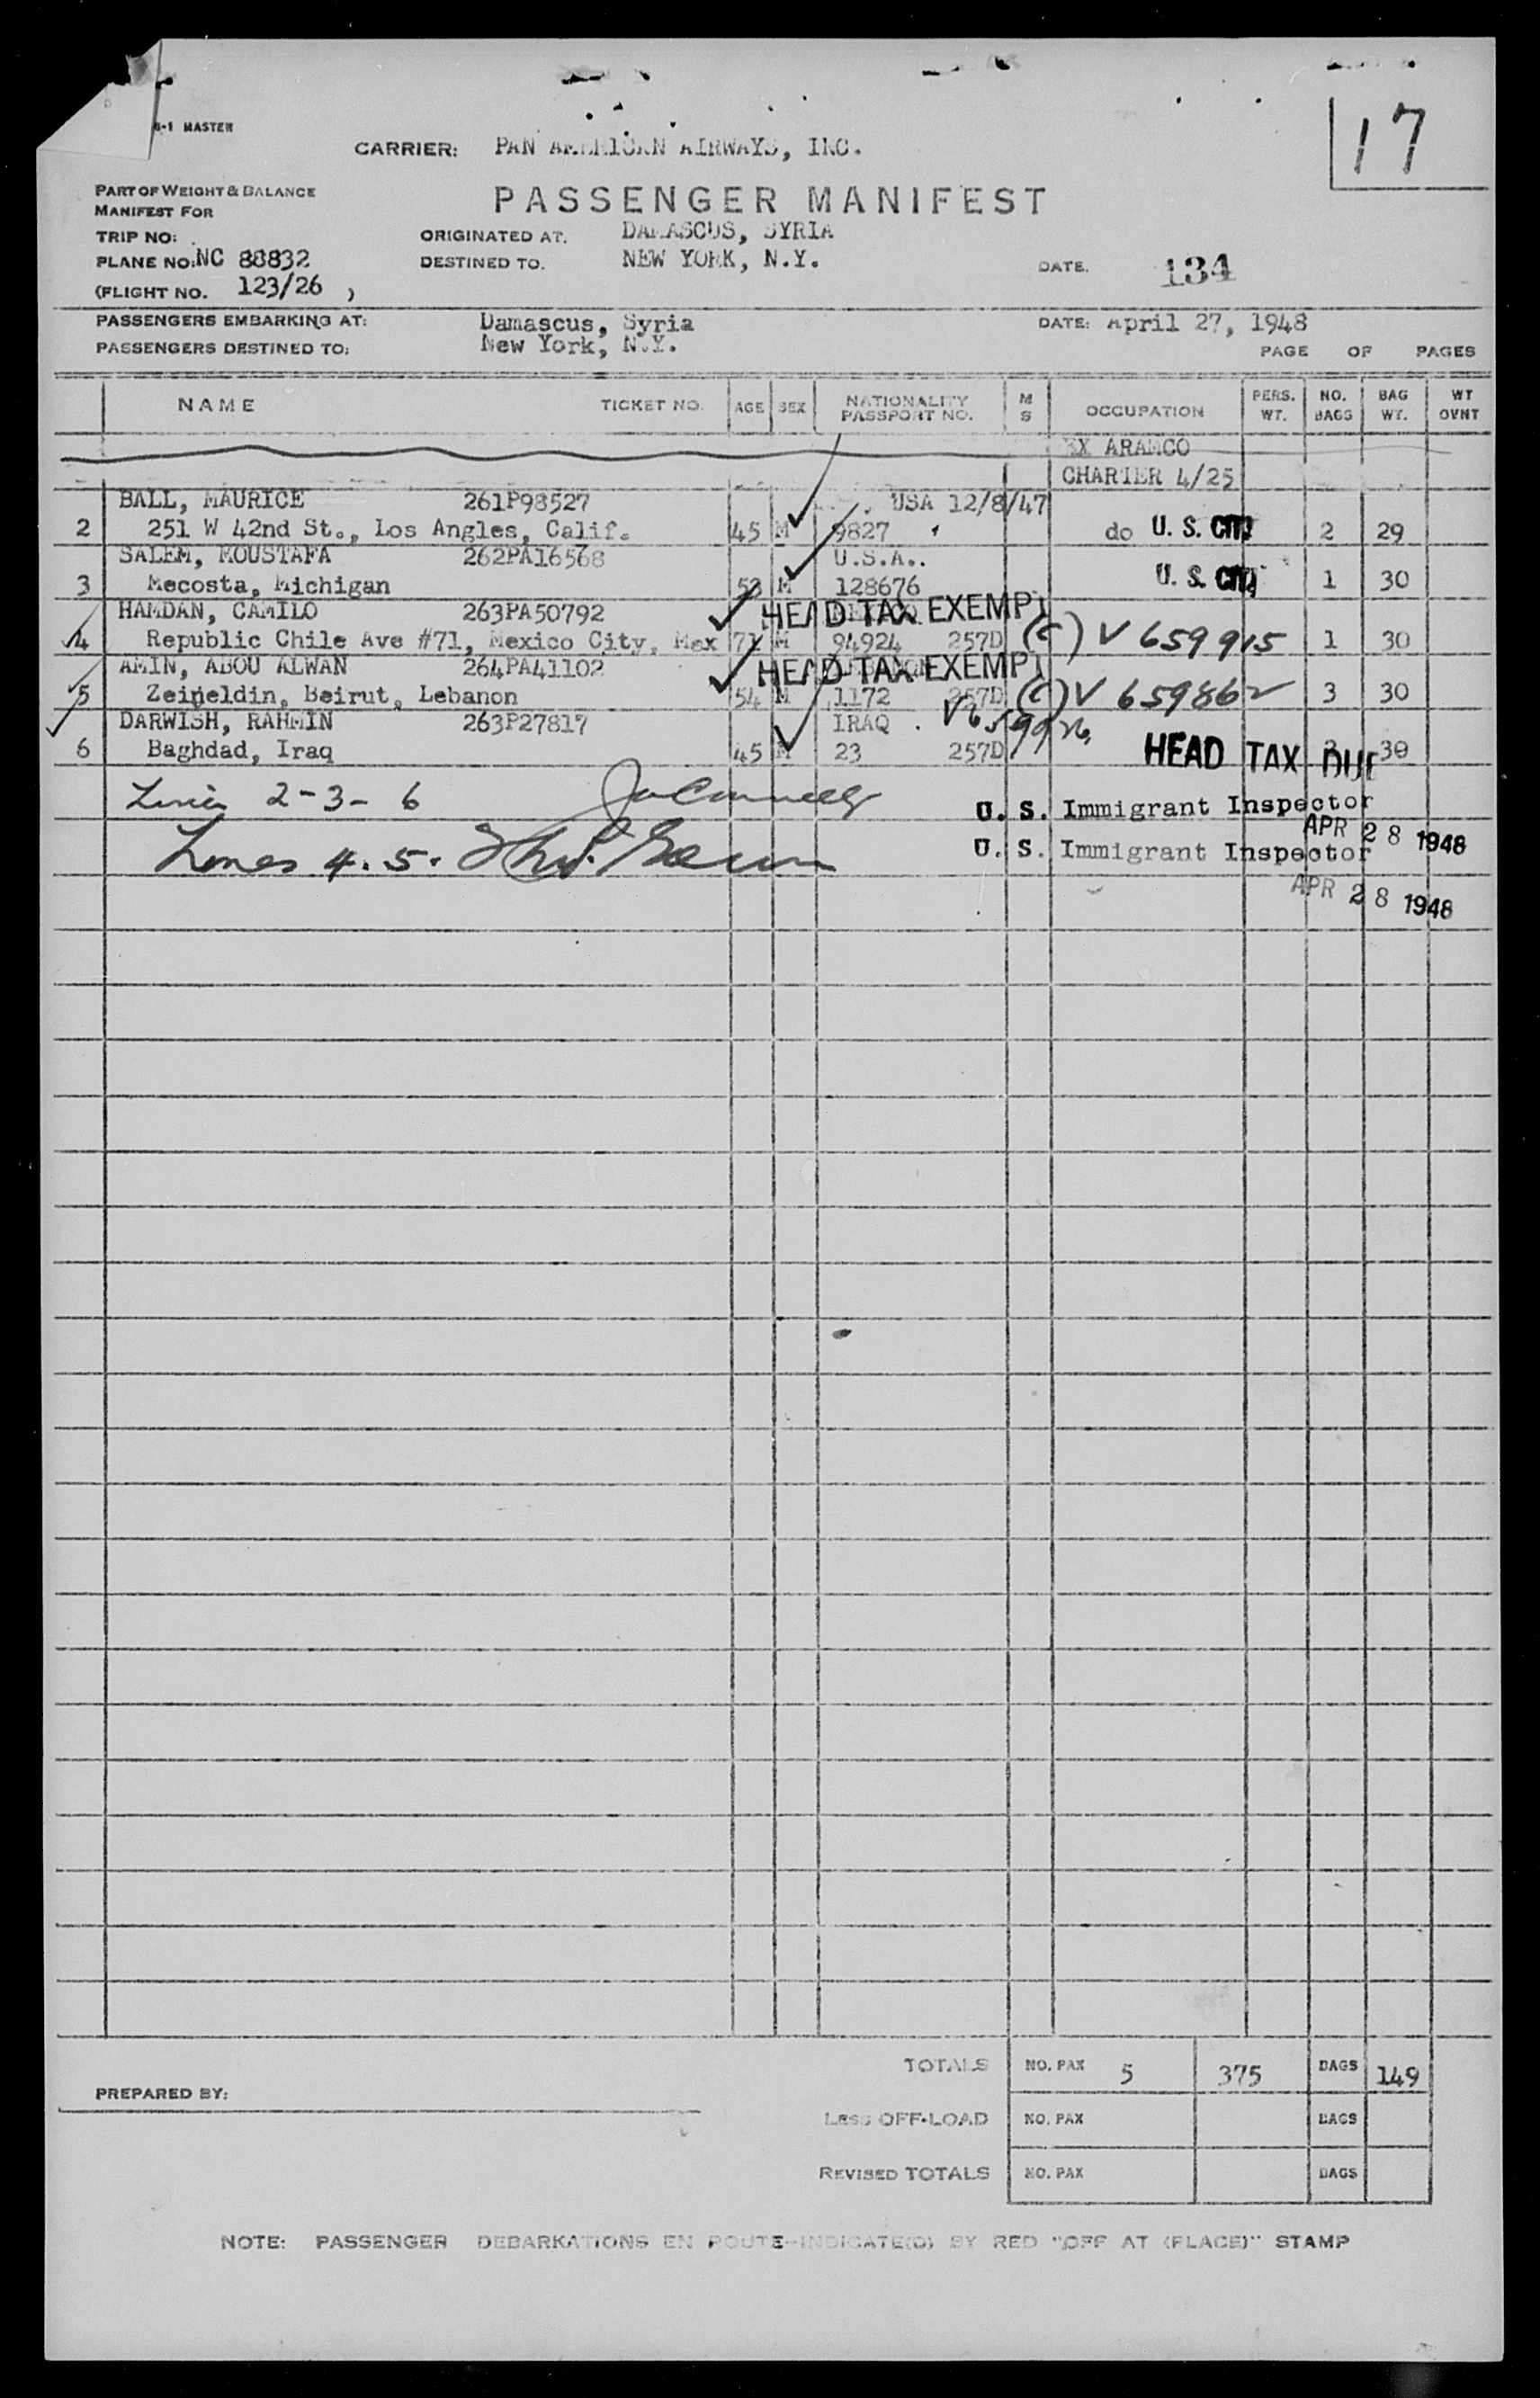 -1 MASTER
17
CARRIER: PAN AMERICAN AIRWAYS, INC.
PART OF WEIGHT & BALANCE
MANIFEST FOR
PASSENGER MANIFEST
TRIP NO:
ORIGINATED AT. DAMASCUS, SYRIA
PLANE NO: NC 88832
DESTINED TO. NEW YORK, N.Y.
DATE. 134
(FLIGHT NO. 123/26 )
PASSENGERS EMBARKING AT: Damascus, Syria DATE: April 27, 1948
PASSENGERS DESTINED TO: New York, N.Y.
PAGE OF PAGES
NAME TICKET NO. AGE SEX NATIONALITY PASSPORT NO. M S OCCUPATION PERS. WT. NO. BAGS BAG WT. WT OVNT
EX ARAMCO
CHARTER 4/25
BALL, MAURICE 261P98527 USA 12/8/47
2 251 W 42nd St., Los Angles, Calif. 45 M 9827 do U. S. CIT. 2 29
SALEM, MOUSTAFA 262PA16568 U.S.A..
3 Mecosta, Michigan 53 M 128676 U. S. CIT. 1 30
HAMDAN, CAMILO 263PA50792 HEAD TAX EXEMPT
4 Republic Chile Ave #71, Mexico City, Mex 71 M 94924 257D (C) V 659915 1 30
AMIN, ABOU ALWAN 264PA41102 HEAD TAX EXEMPT
5 Zeineldin, Beirut, Lebanon 54 M 1172 257D (C) V 659862 3 30
DARWISH, RAHMIN 263P27817 IRAQ
6 Baghdad, Iraq 45 M 23 257D HEAD TAX DUE 30
Lines 2-3-6 U. S. Immigrant Inspector
APR 28 1948
Lines 4.5. U. S. Immigrant Inspector
APR 28 1948
TOTALS NO. PAX 5 375 BAGS 149
PREPARED BY:
Less OFF-LOAD NO. PAX BAGS
REVISED TOTALS NO. PAX BAGS
NOTE: PASSENGER DEBARKATIONS EN ROUTE-INDICATE(D) BY RED "OFF AT (PLACE)" STAMP